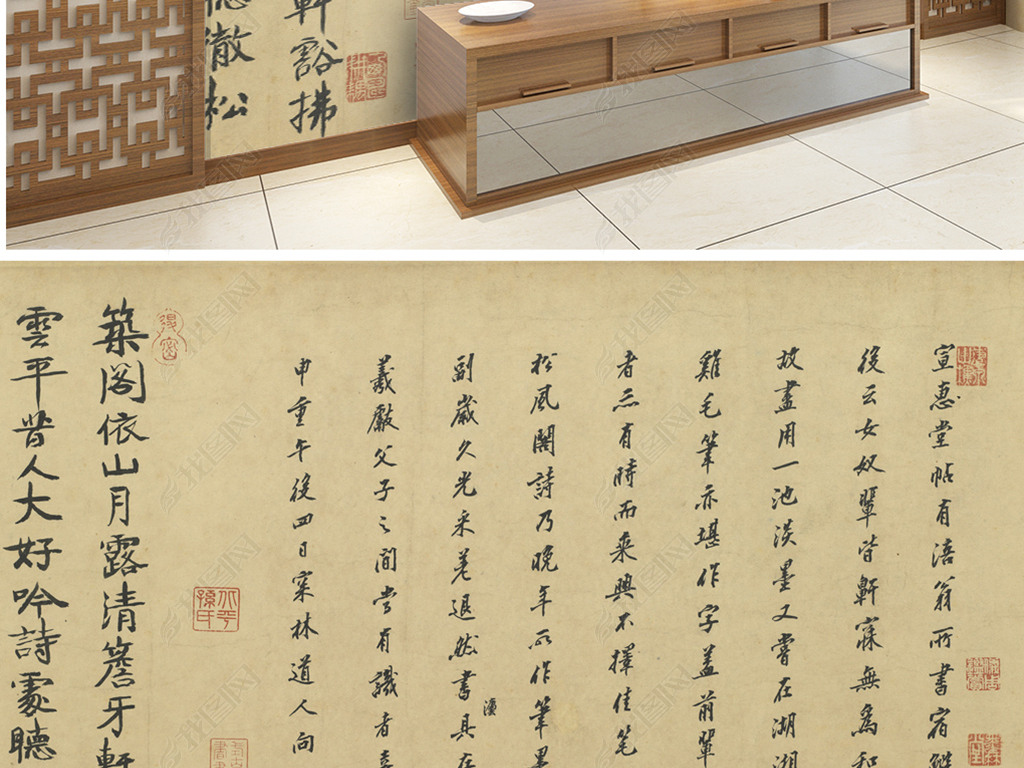 軒豁拂
澈松
宣惠堂帖有涪翁所書宿
後云女奴輩皆鼾寐無為和
故盡用一池淡墨又嘗在湖
雞毛筆亦堪作字蓋前輩
者亦有時而乘興不擇佳筆
松風閣詩乃晚年所作筆墨
副歲久光采差退然書具在
羲獻父子之間嘗有識者
申重午後四日寀林道人向
築閣依山月露清簷牙軒
雲平昔人大好吟詩處聽
北平孫氏